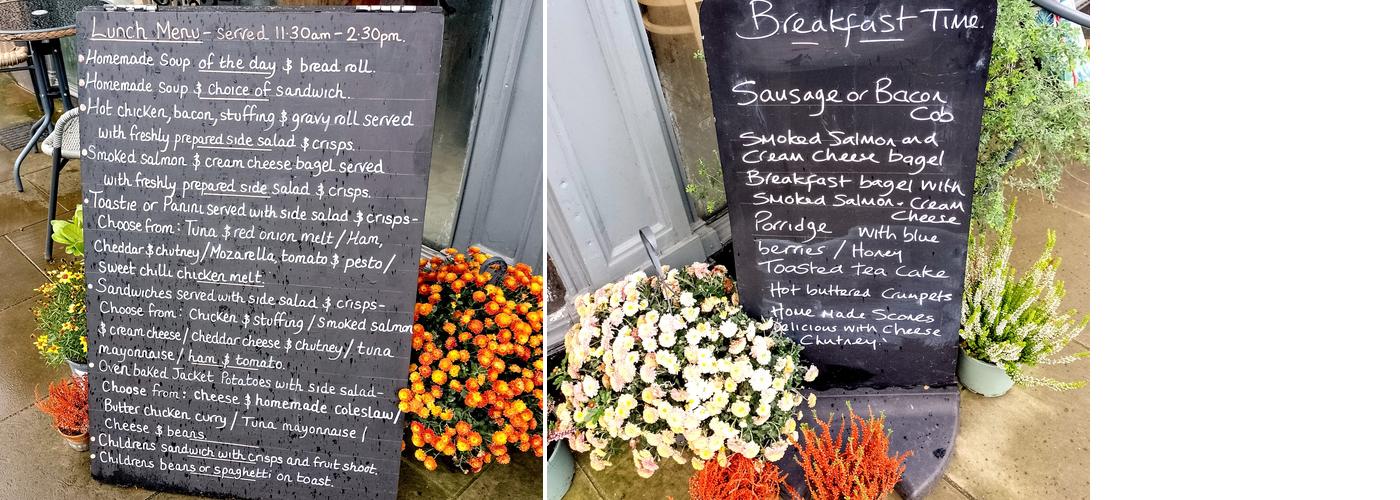 Lunch Menu - served 11.30am - 2.30pm.
• Homemade Soup of the day & bread roll.
• Homemade Soup & Choice of sandwich.
• Hot chicken, bacon, stuffing & gravy roll served
with freshly prepared side salad & crisps.
• Smoked salmon & cream cheese bagel served
with freshly prepared side salad & crisps.
• Toastie or Panini served with side salad & crisps -
Choose from: Tuna & red onion melt / Ham,
Cheddar & chutney / Mozarella, tomato & pesto /
Sweet chilli chicken melt.
• Sandwiches served with side salad & crisps -
Choose from: Chicken & stuffing / Smoked salmon
& cream cheese / cheddar cheese & chutney / tuna
mayonnaise / ham & tomato.
• Oven baked Jacket Potatoes with side salad -
Choose from: cheese & homemade coleslaw /
Butter chicken curry / Tuna mayonnaise /
Cheese & beans
• Childrens sandwich with crisps and fruit shoot.
• Childrens beans or spaghetti on toast.
Breakfast Time.
Sausage or Bacon
Cob
Smoked Salmon and
Cream Cheese bagel
Breakfast bagel with
Smoked Salmon - Cream
Cheese
Porridge with blue
berries / Honey
Toasted tea Cake
Hot buttered Crumpets
Home Made Scones
Delicious with Cheese
Chutney.